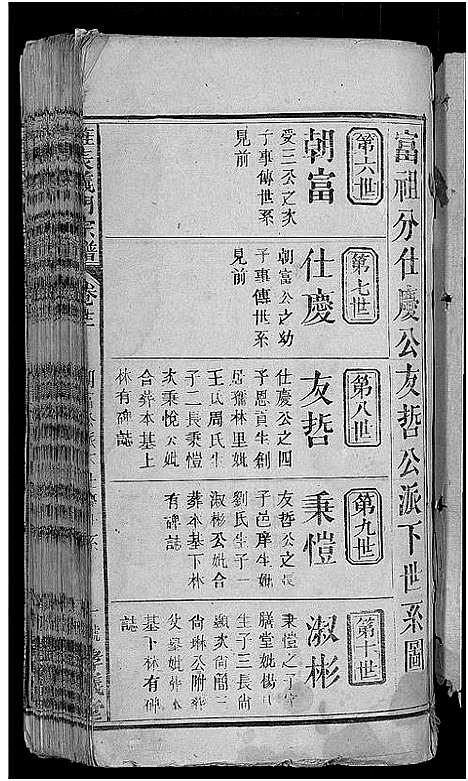 富祖分仕慶公友哲公派下世系圖
第六世
朝富
受三公之次
子事傳世系
見前
第七世
仕慶
朝富公之幼
子事傳世系
見前
第八世
友哲
仕慶公之四
子恩貢生創
居獾林里妣
王氏周氏生
子二長秉愷
次秉悅公妣
合葬本基上
林有碑誌
第九世
秉愷
友哲公之長
子邑庠生妣
劉氏生子一
淑彬公妣合
葬本基下林
有碑誌
第十世
淑彬
秉愷之子字
膳堂妣楊氏
生子三長尚
顯次尚簡三
尚琳公附葬
父墓妣葬本
基下林有碑
誌
義門宗譜